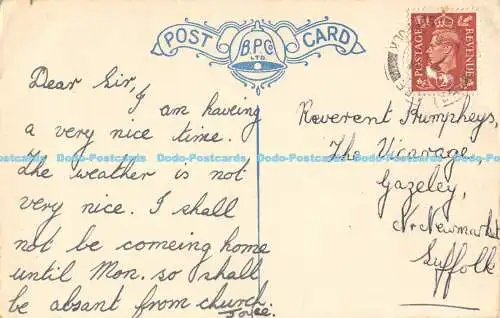 POST CARD
B.P.C.
LTD.
POSTAGE REVENUE
Dear Sir,
I am having
a very nice time.
The weather is not
very nice. I shall
not be comeing home
until Mon. so shall
be absant from church.
Joyce.
Reverent Humpheys,
The Vicarage,
Gazeley,
Nr Newmarket
Suffolk
Dodo-Postcards Dodo-Postcards Dodo-Postcards Dodo-Postcards Dodo-Postcards